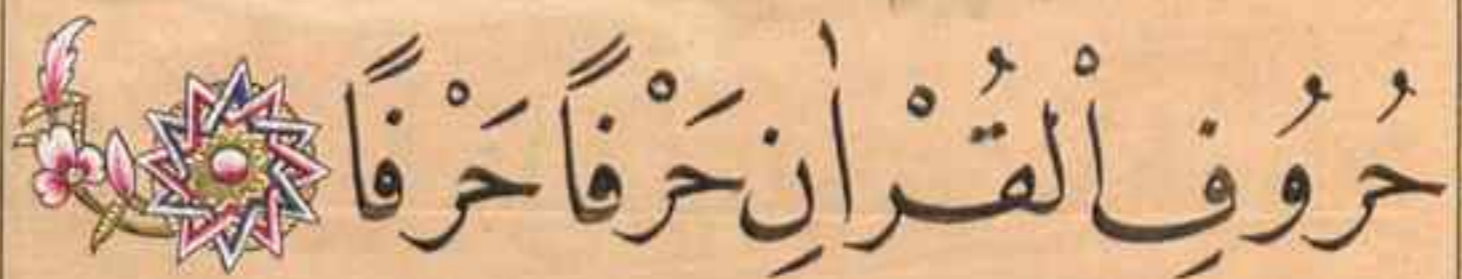 حُرُوُفِ اْلقُرْاٰنِ حَرْفًا حَرْفًا